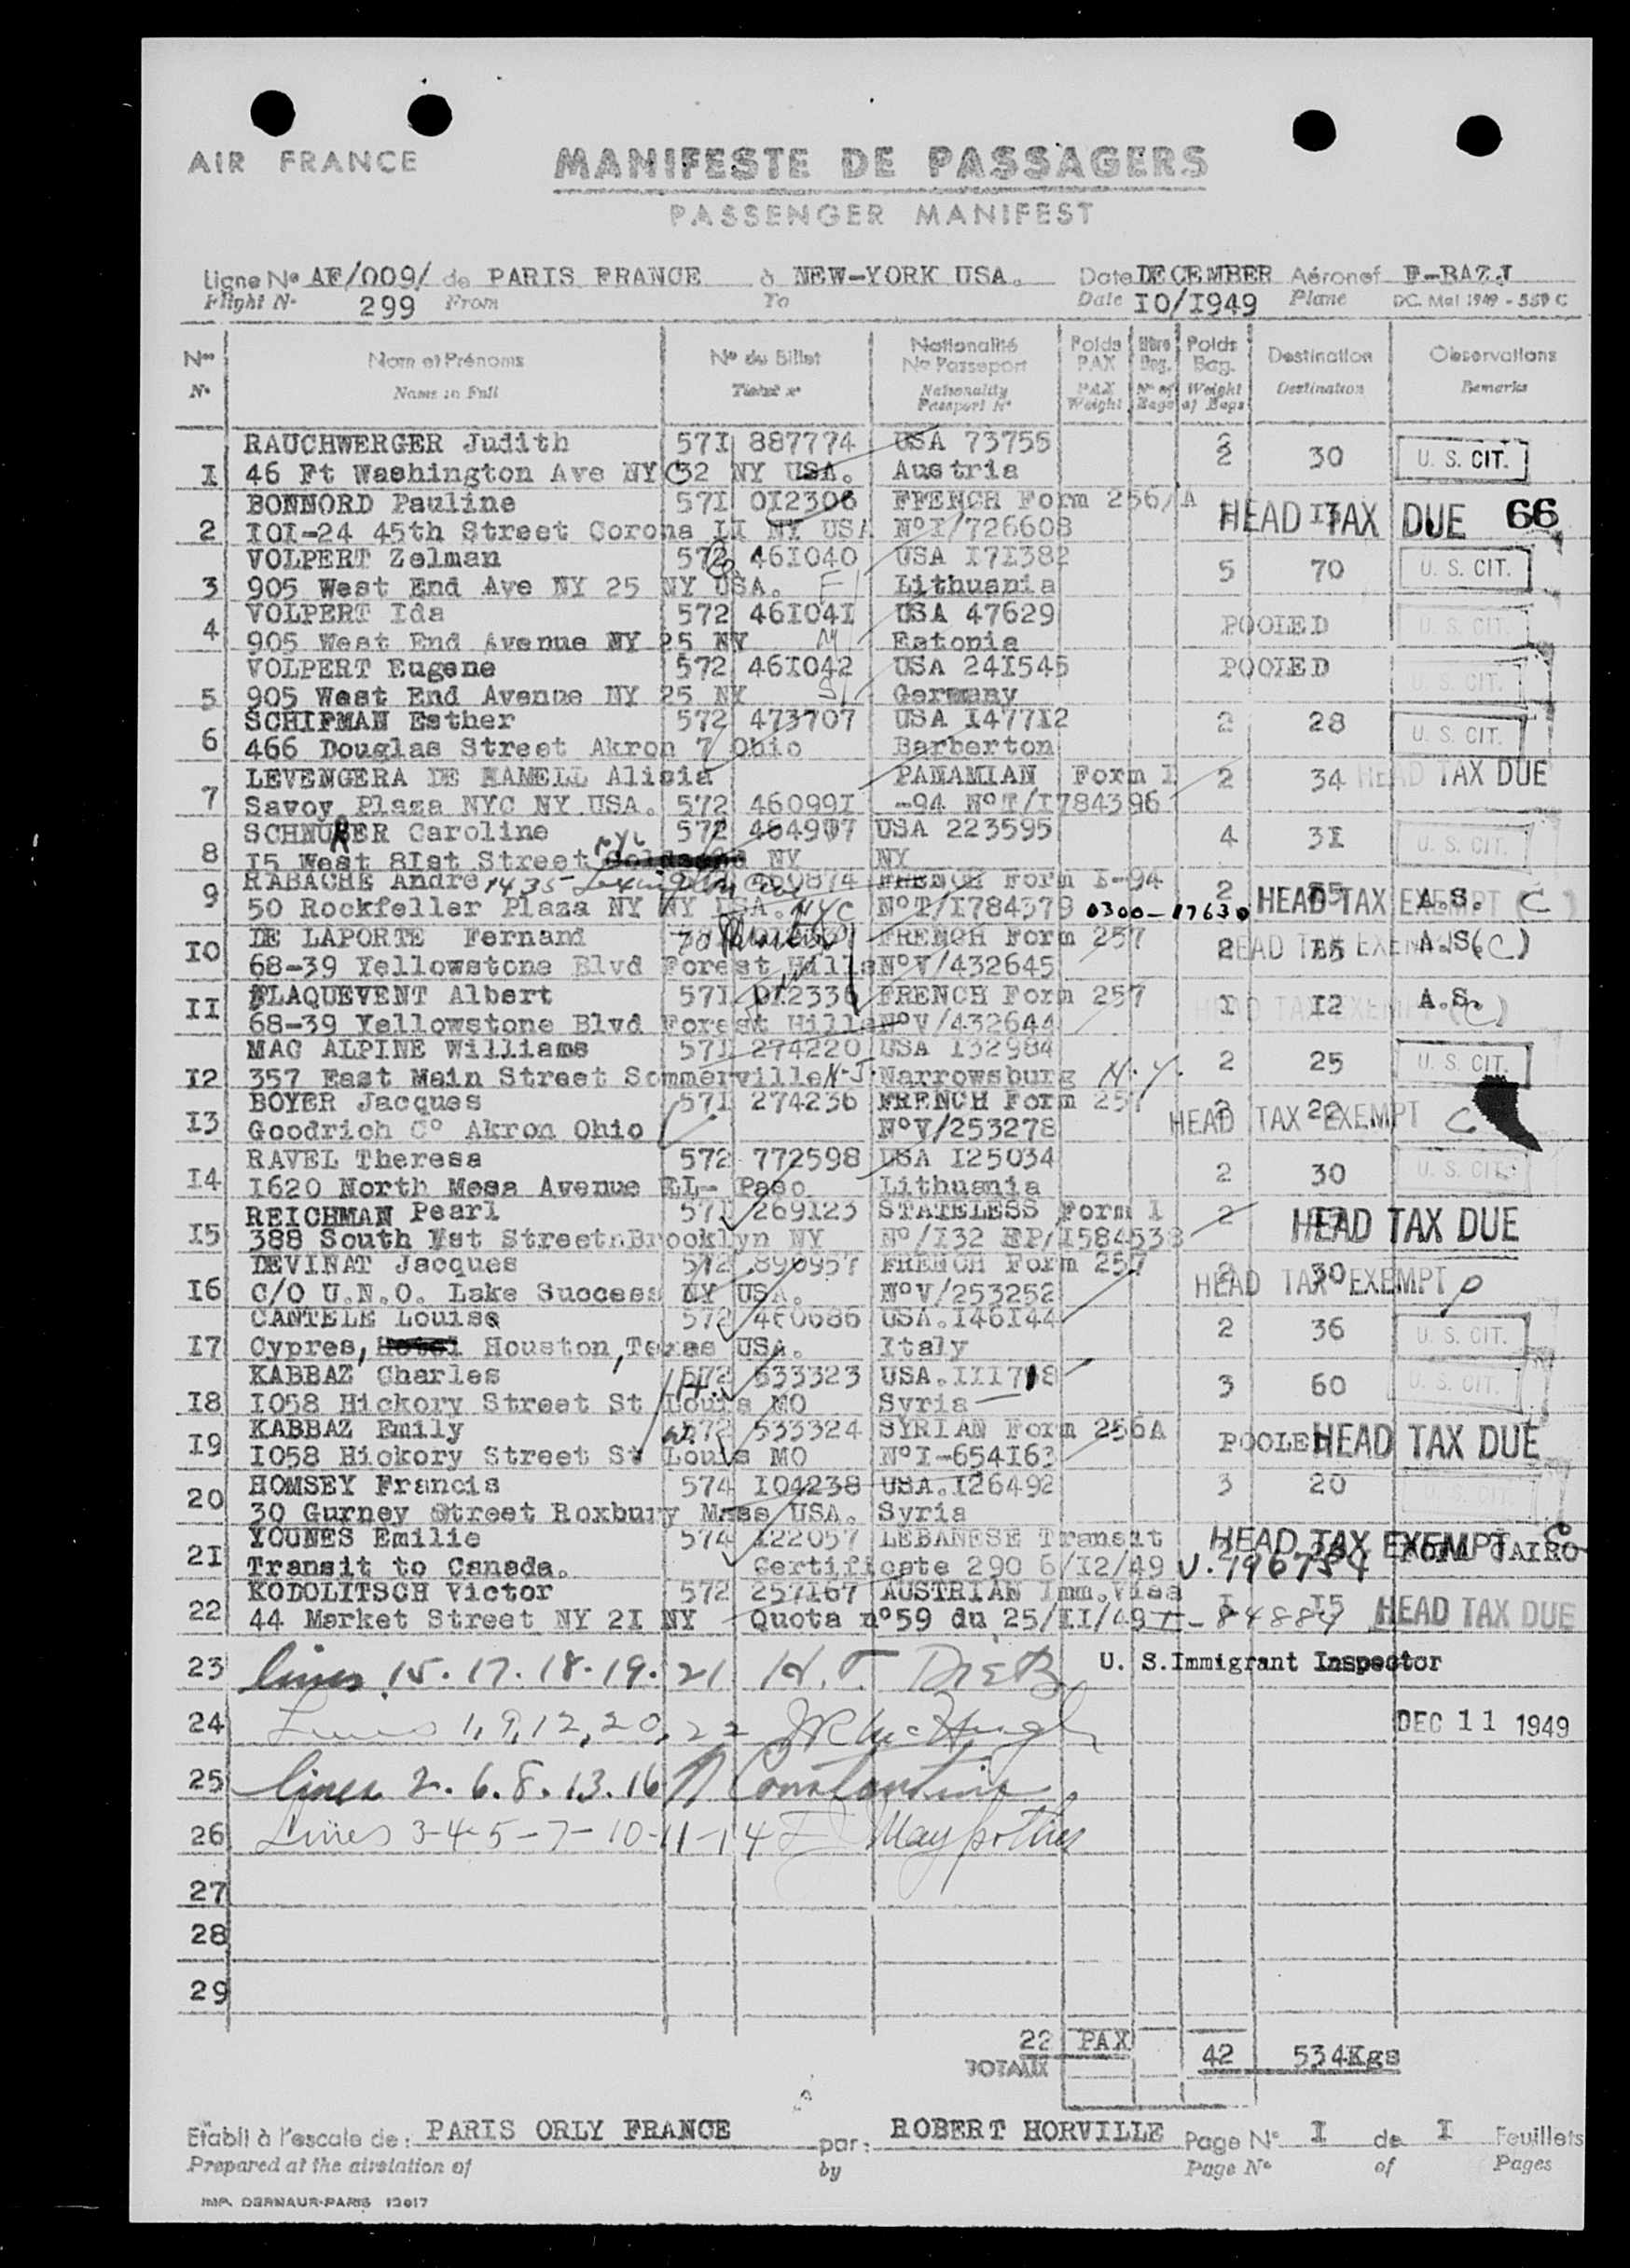 AIR FRANCE
MANIFESTE DE PASSAGERS
PASSENGER MANIFEST
Ligne No AF/009/ de PARIS FRANCE à NEW-YORK USA. Date DECEMBER Aéronef F-BAZJ
Flight No 299 From To Date I0/I949 Plane DC. Mai 1949 - 559 C
Nos Nom et Prénoms No du Billet Nationalité No Passeport Poids PAX Nbre Bag. Poids Bag. Destination Observations
No Name in Full Ticket no Nationality Passport No PAX Weight No of Bags Weight of Bags Destination Remarks
RAUCHWERGER Judith 57I 887774 USA 73755 2
I 46 Ft Washington Ave NYC 32 NY USA. Austria 2 30 U. S. CIT.
BONNORD Pauline 57I 0I2306 FFENCH Form 256/A
2 I0I-24 45th Street Corona LI NY USA NoI/726608 HEAD TAX DUE 66
VOLPERT Zelman 572 46I040 USA I7I382
3 905 West End Ave NY 25 NY USA. Lithuania 5 70 U. S. CIT.
VOLPERT Ida 572 46I04I USA 47629
4 905 West End Avenue NY 25 NY Estonia POOLED U. S. CIT.
VOLPERT Eugene 572 46I042 USA 24I545 POOLED
5 905 West End Avenue NY 25 NY Germany U. S. CIT.
SCHIFMAN Esther 572 473707 USA I477I2 2 28
6 466 Douglas Street Akron 7 Ohio Barberton U. S. CIT.
LEVENGERA DE HAMELL Alisia PANAMIAN Form I 2 34 HEAD TAX DUE
7 Savoy Plaza NYC NY.USA. 572 46099I -94 NoT/I784396
SCHNURER Caroline 572 464907 USA 223595 4 3I
8 I5 West 8Ist Street NYC NY NY U. S. CIT.
RABACHE Andre 1435 Lexington Ave 460874 FRENCH Form I-94 2
9 50 Rockfeller Plaza NY NY USA. NYC NoT/I784379 0300-17630 HEAD TAX EXEMPT A.S. C
DE LAPORTE Fernand FRENCH Form 257
10 68-39 Yellowstone Blvd Forest Hills NoV/432645 2 HEAD TAX EXEMPT A.S. (C)
PLAQUEVENT Albert 57I 0I2336 FRENCH Form 257
II 68-39 Yellowstone Blvd Forest Hills NoV/432644 I I2 HEAD TAX EXEMPT A.S. (C)
MAC ALPINE Williams 57I 274220 USA I32984 2 25 U. S. CIT.
I2 357 East Main Street Sommerville N.J. Narrowsburg N.Y.
BOYER Jacques 57I 274236 FRENCH Form 257
I3 Goodrich Co Akron Ohio NoV/253278 22 HEAD TAX EXEMPT C
RAVEL Theresa 572 772598 USA I25034
I4 I620 North Mesa Avenue EL- Paso Lithuania 2 30 U. S. CIT.
REICHMAN Pearl 57I 269I23 STATELESS Form I 2
I5 388 South Ist Street Brooklyn NY No/I32 EP/I584538 HEAD TAX DUE
DEVINAT Jacques 572 890957 FRENCH Form 257
I6 C/O U.N.O. Lake Success NY USA. NoV/253252 2 30 HEAD TAX EXEMPT
CANTELE Louise 572 460686 USA.I46I44
I7 Cypres, Houston, Texas USA. Italy 2 36 U. S. CIT.
KABBAZ Charles 572 533323 USA.III718
I8 I058 Hickory Street St Louis MO Syria 3 60 U. S. CIT.
KABBAZ Emily W. 572 533324 SYRIAN Form 256A
I9 I058 Hickory Street St Louis MO NoI-654I63 POOLED HEAD TAX DUE
HOMSEY Francis 574 I04238 USA.I26492 3 20
20 30 Gurney Street Roxbury Mass USA. Syria U. S. CIT.
YOUNES Emilie 574 I22057 LEBANESE Transit HEAD TAX EXEMPT C
2I Transit to Canada. Certificate 290 6/I2/49 V.196754 CAIRO
KODOLITSCH Victor 572 257I67 AUSTRIAN Imm.Visa I I5
22 44 Market Street NY 2I NY Quota no59 du 25/II/49 I-84884 HEAD TAX DUE
23 lines 15.17.18.19.21 H.T. Dietz U. S.Immigrant Inspector
24 Lines 1,9,12,20,22 J R McHugh DEC 11 1949
25 lines 2.6.8.13.16 Constantine
26 Lines 3-4-5-7-10-11-14
27
28
29
22 PAX
TOTAUX 42 534Kgs
Etabli à l'escale de: PARIS ORLY FRANCE par: ROBERT HORVILLE Page No I de I Feuillets
Prepared at the airstation of by Page No of Pages
IMP. DERNAUR-PARIS 12017